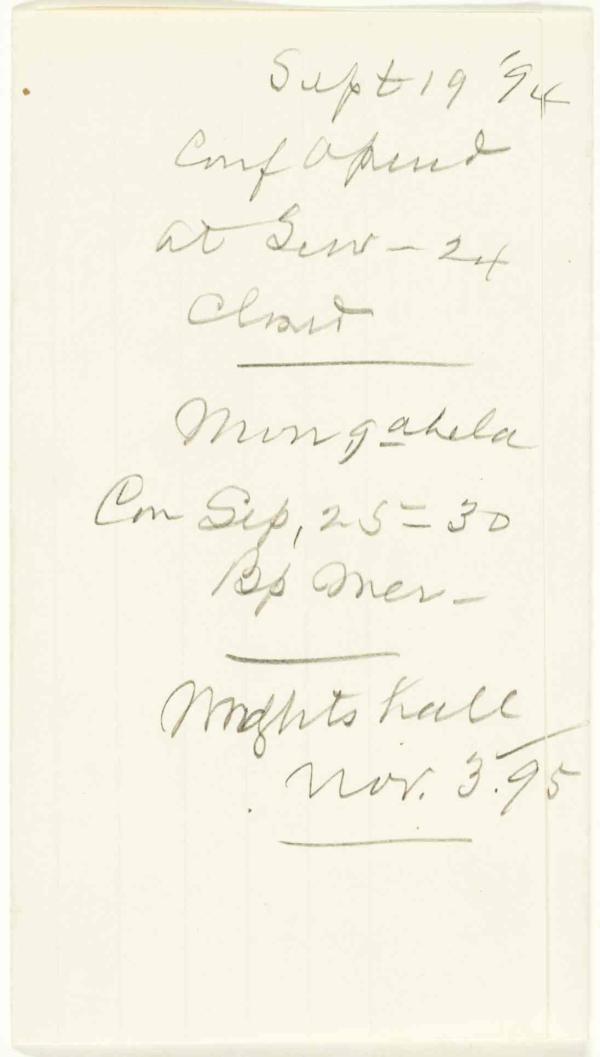 Sept 19 '94
Conf Opened
at Gew – 24
Closed
Mongahela
Con Sep, 25 = 30
Bp Mer –
Wrights hall
Nov. 3. 95